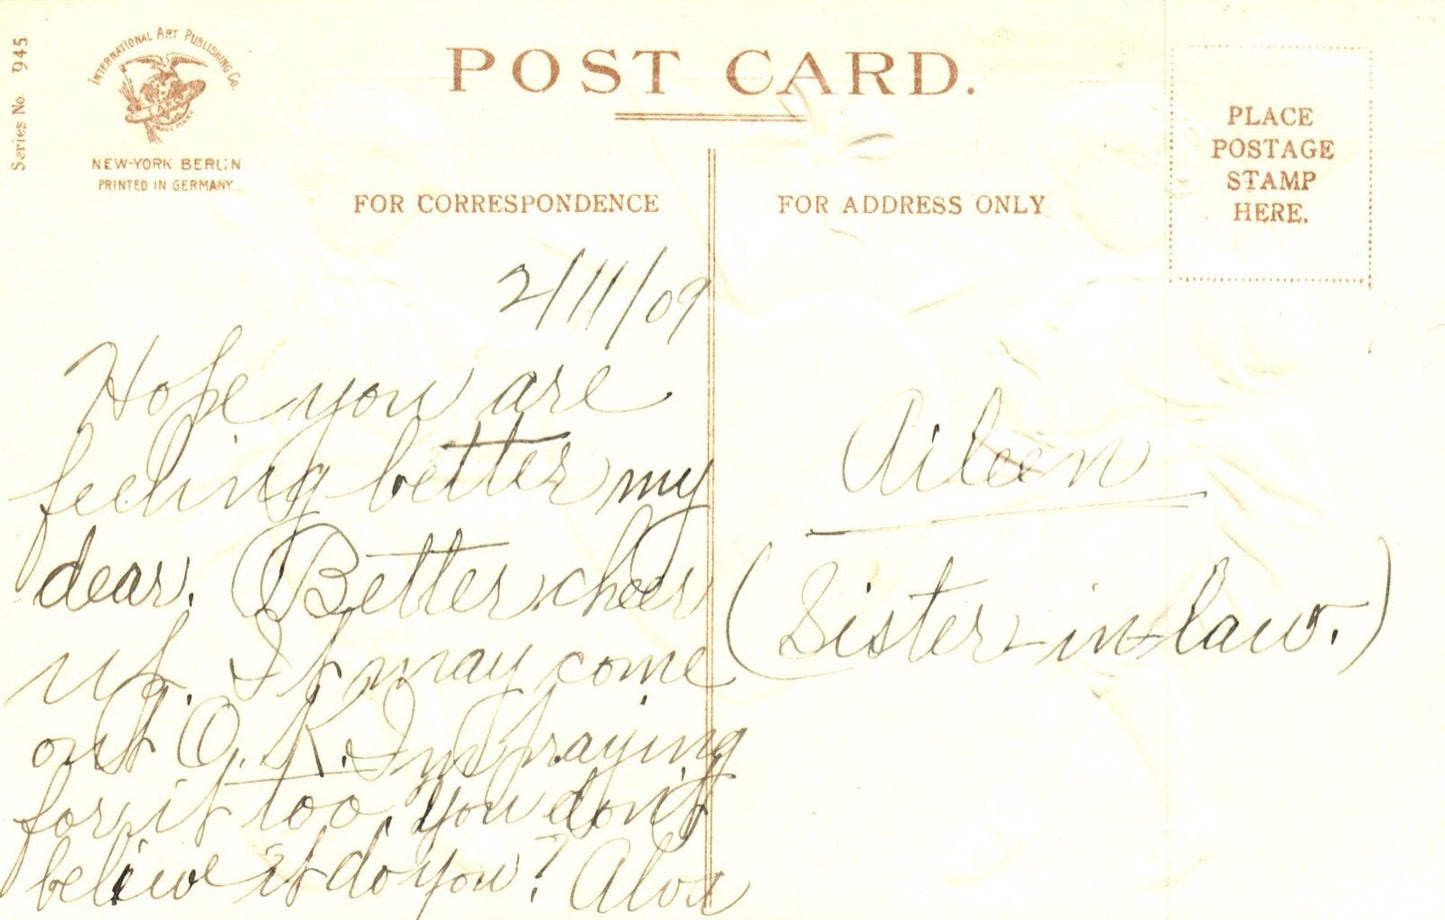 Series No 945
INTERNATIONAL ART PUBLISHING CO.
TRADE MARK
NEW-YORK BERLIN
PRINTED IN GERMANY
POST CARD.
PLACE
POSTAGE
STAMP
HERE.
FOR CORRESPONDENCE
FOR ADDRESS ONLY
2/11/09
Hope you are
feeling better my
dear. Better cheer
up. It may come
out O.K. Im praying
for it too. You don't
believe it do you? Alva
Aileen
(Sister-in-law.)